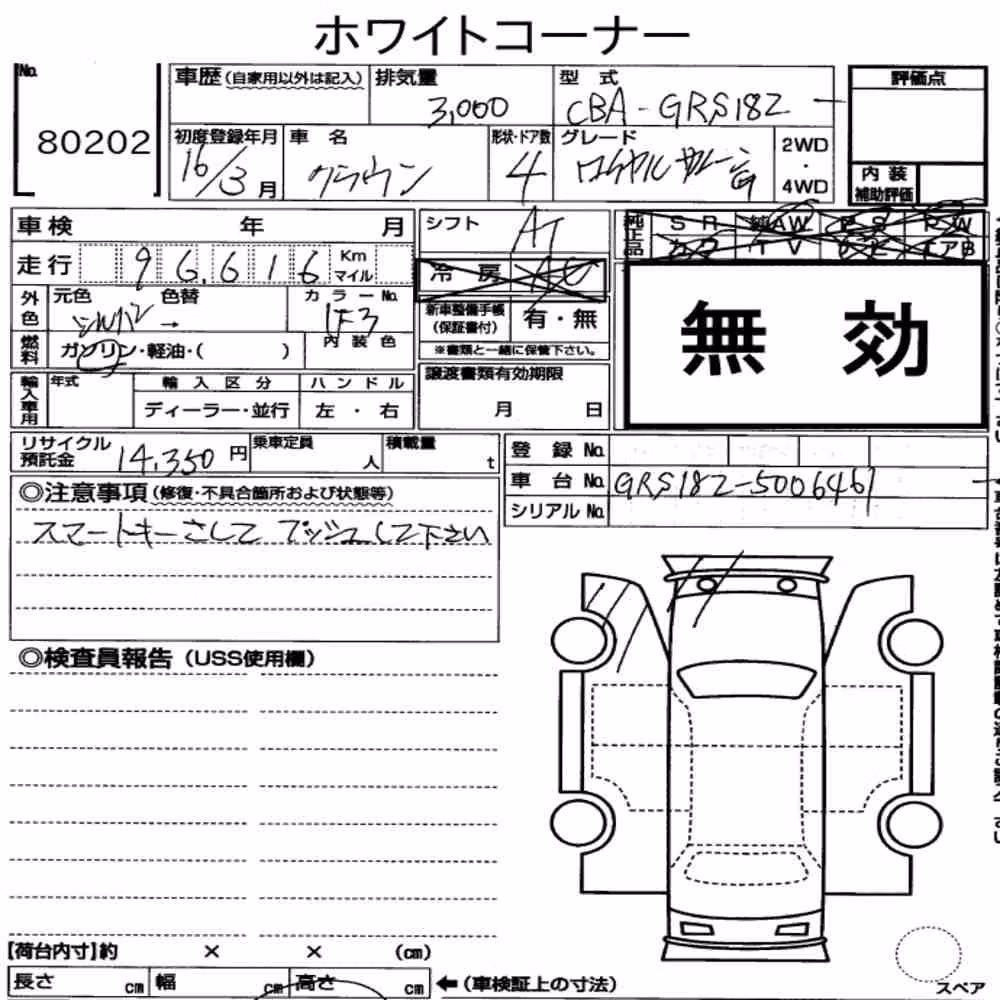 ホワイトコーナー
No.
80202
車歴 (自家用以外は記入)
排気量
3,000
型 式
CBA-GRS182
評価点
初度登録年月
16/3月
車 名
クラウン
形状・ドア数
4
グレード
ロイヤルサルーン
2WD
・
4WD
内 装
補助評価
車検 年 月
シフト
AT
純正品
SR
純AW
PS
PW
TV
エアB
走行 96,616 Km マイル
冷 房
無 効
外色
元色 色替
シルバー →
カラーNo.
1F3
新車整備手帳
(保証書付)
有・無
※書類と一緒に保管下さい。
燃料
ガソリン・軽油・( )
内 装 色
輸入車用
年式
輸 入 区 分
ディーラー・並行
ハ ン ド ル
左 ・ 右
譲渡書類有効期限
月 日
リサイクル
預託金
14,350 円
乗車定員
人
積載量
t
登 録 No.
車 台 No. GRS182-5006461
シリアル No.
◎注意事項 (修復・不具合箇所および状態等)
スマートキーさして プッシュして下さい
◎検査員報告 (USS使用欄)
【荷台内寸】約 × × (cm)
長さ cm 幅 cm 高さ cm ←(車検証上の寸法)
スペア